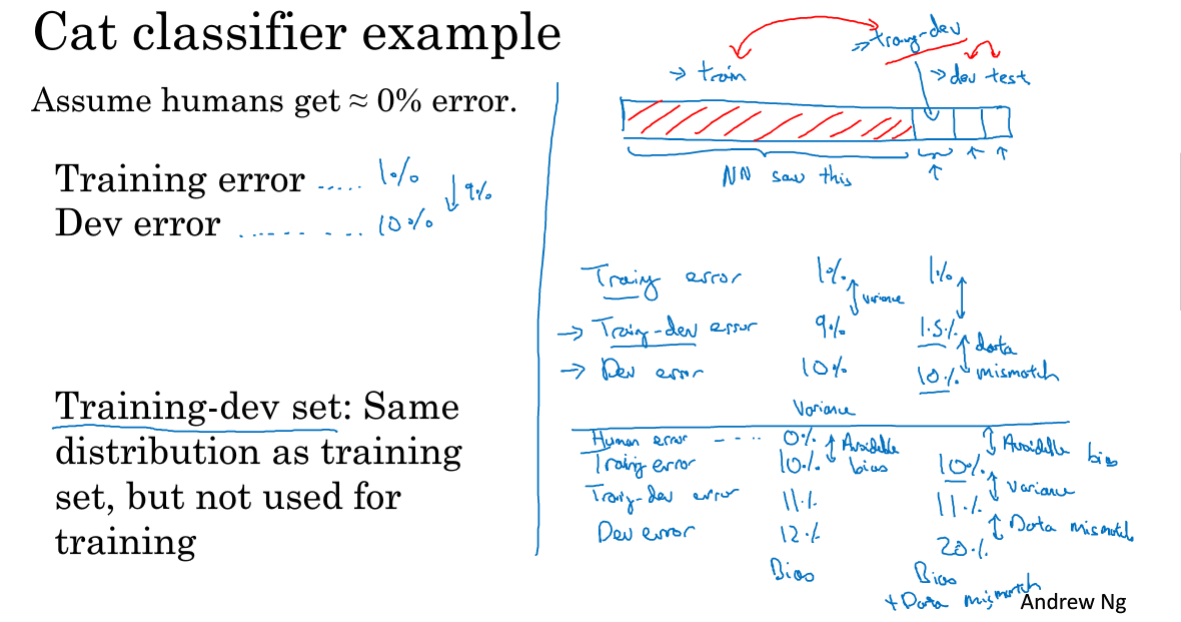 Cat classifier example
Assume humans get ≈ 0% error.
Training error ..... 1%
Dev error ......... 10%
↓ 9%
Training-dev set: Same
distribution as training
set, but not used for
training
→ train
→ traing-dev
→ dev test
NN saw this
Traing error 1% 1%
variance
→ Traing-dev error 9% 1.5%
data
mismatch
→ Dev error 10% 10%
Variance
Human error .... 0% Avoidable bias
Avoidable bias
Traing error 10% 10%
variance
Traing-dev error 11% 11%
Data mismatch
Dev error 12% 20%
Bias
Bias
+ Data mismatch
Andrew Ng